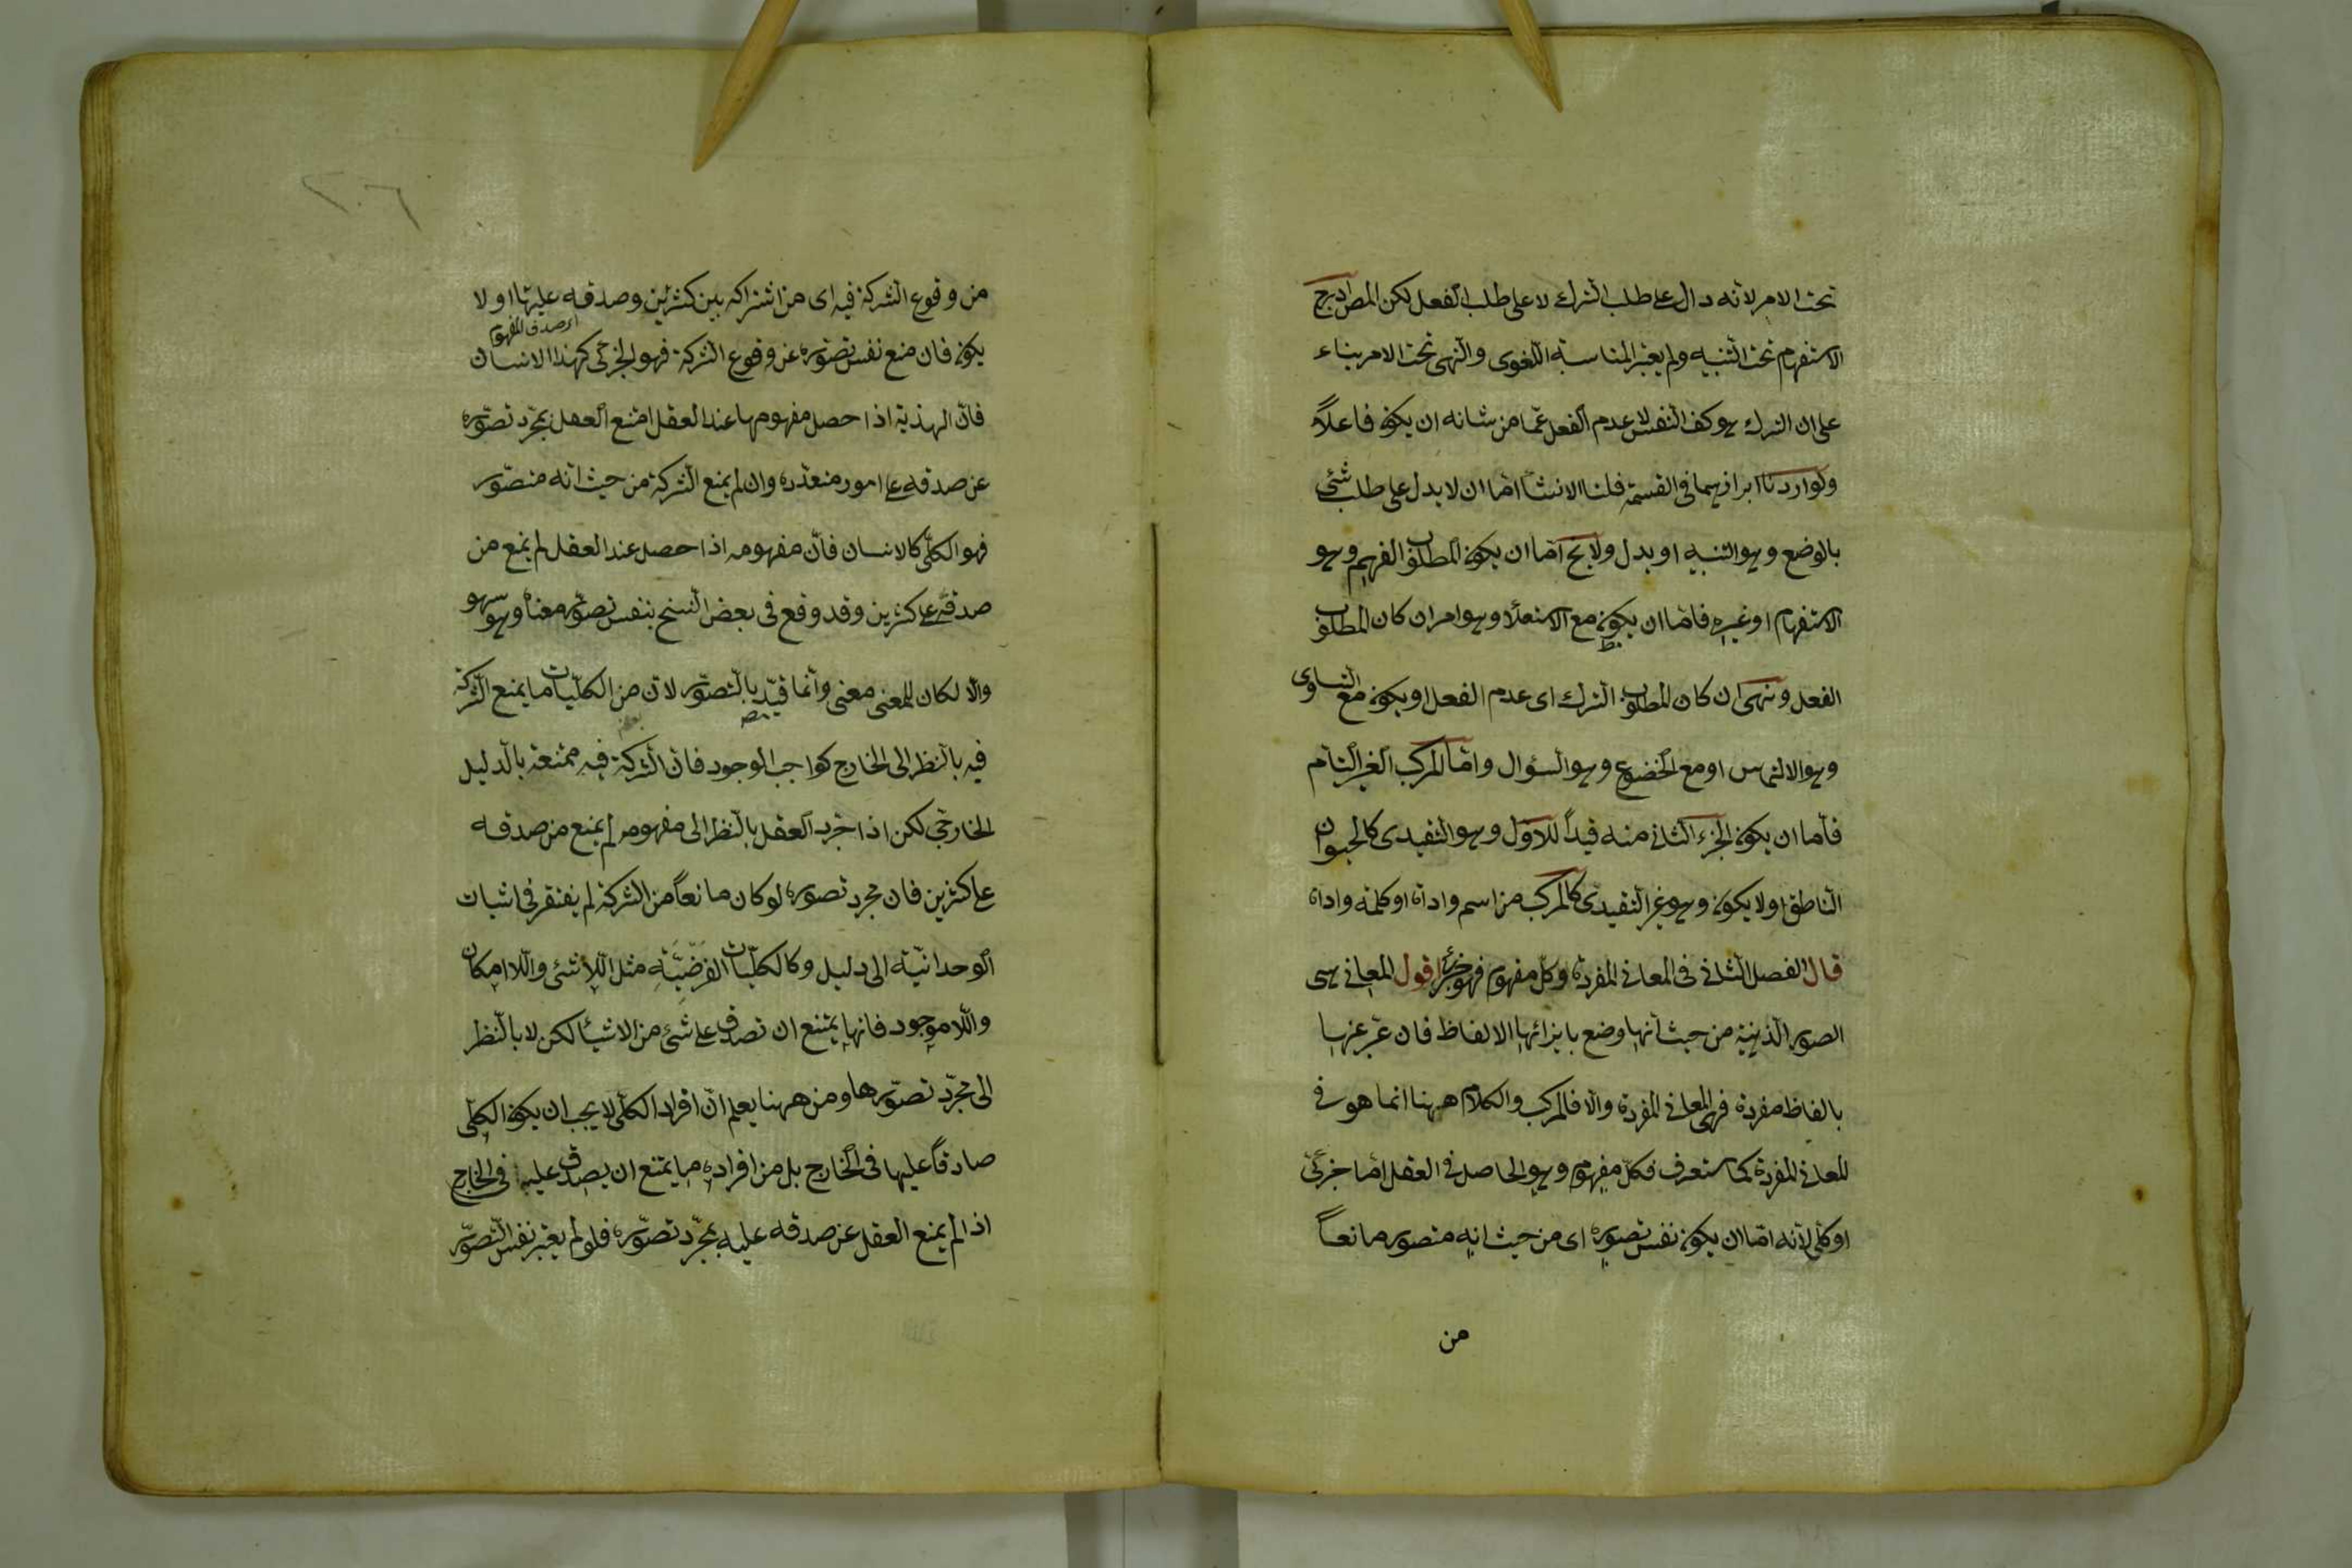 تحت الامر لانه دال على طلب الترك لا على طلب الفعل لكن المص ادرج
الاستفهام تحت التنبيه ولم يعتبر المناسبة اللغوى والنهى تحت الامر بناء
على ان الترك هو كف النفس لا عدم الفعل عما من شانه ان يكون فاعلاً
ولو اردنا ايرادهما فى القسمة قلنا الانشا اما ان لا يدل على طلب شئى
بالوضع وهو التنبيه او يدل ولا يخ اما ان يكون المطلوب الفهم وهو
الاستفهام او غيره فاما ان يكون مع الاستعلا وهو امر ان كان المطلوب
الفعل ونهى ان كان المطلوب الترك اى عدم الفعل او يكون مع التساوى
وهو الالتماس او مع الخضوع وهو السؤال واما المركب الغير التام
فاما ان يكون الجزء الثانى منه قيداً للاول وهو التقيدى كالحيوان
الناطق او لا يكون وهو غير التقيدى كالمركب من اسم واداة او كلمة واداة
قال الفصل الثانى فى المعانى المفردة وكل مفهوم فهو جزئى اقول المعانى هى
الصور الذهنية من حيث انها وضع بايزائها الالفاظ فان عبر عنها
بالفاظ مفردة فهى المعانى المفردة والا فالمركب والكلام ههنا انما هو فى
المعانى المفردة كما ستعرف فكل مفهوم وهو الحاصل فى العقل اما جزئى
او كلى لانه اما ان يكون نفس تصوره اى من حيث انه متصور مانعاً
من
٢٠٦
من وقوع الشركة فيه اى من اشتراكه بين كثيرين وصدقه عليها او لا
اى صدق المفهوم
يكون فان منع نفس تصوره عن وقوع الشركة فهو الجزئى كهذا الانسان
فان الهذية اذا حصل مفهومها عند العقل امتنع العقل بمجرد تصوره
عن صدقه على امور متعددة وان لم يمنع الشركة من حيث انه متصور
فهو الكلى كالانسان فان مفهومه اذا حصل عند العقل لم يمنع من
صدقه على كثيرين وقد وقع فى بعض النسخ بنفس تصور معناه وهو سهو
والا لكان للمعنى معنى وانما قيد بالتصور لان من الكليات ما يمنع الشركة
فيه بالنظر الى الخارج كواجب الوجود فان الشركة فيه ممتنعة بالدليل
الخارجى لكن اذا جرد العقل بالنظر الى مفهومه لم يمنع من صدقه
على كثيرين فان مجرد تصوره لو كان مانعاً من الشركة لم يفتقر فى اثبات
الوحدانية الى دليل وكالكليات الفرضية مثل اللاشئى واللاامكان
واللاموجود فانها يمتنع ان تصدق على شئى من الاشيا لكن لا بالنظر
الى مجرد تصورها ومن ههنا يعلم ان افراد الكلى لا يجب ان يكون الكلى
صادقاً عليها فى الخارج بل من افراده ما يمتنع ان يصدق عليه فى الخارج
اذا لم يمنع العقل عن صدقه عليه بمجرد تصوره فلو لم يعتبر نفس التصور